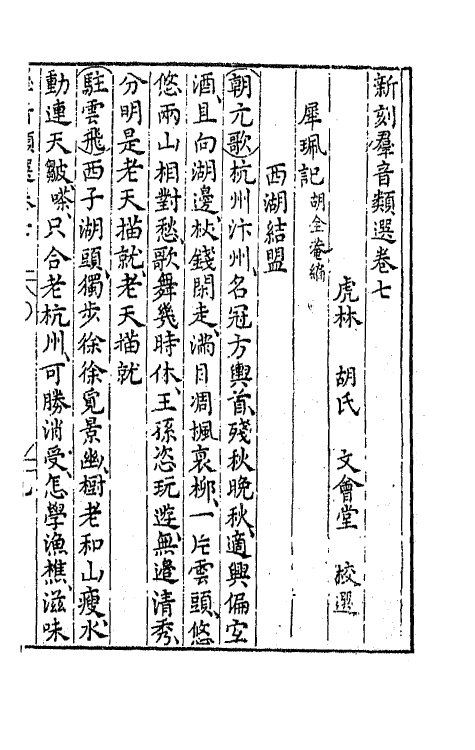 新刻羣音類選卷七
虎林 胡氏 文會堂 校選
犀珮記 胡全菴編
西湖結盟
朝元歌杭州汴州名冠方輿首殘秋晚秋適興偏宜
酒且向湖邊杖錢閑走滿目凋楓衰柳一片雲頭悠
悠兩山相對愁歌舞幾時休王孫恣玩遊無邊清秀
分明是老天描就老天描就
駐雲飛西子湖頭獨步徐徐覓景幽樹老和山瘦水
動連天皺嗏只合老杭州可勝消受怎學漁樵滋味